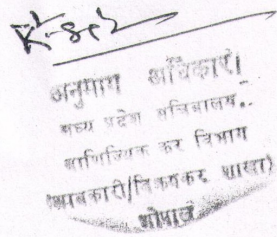 अनुभाग अधिकारी
मध्य प्रदेश सचिवालय..
वाणिज्यिक कर विभाग
(आबकारी/विक्रयकर शाखा)
भोपाल